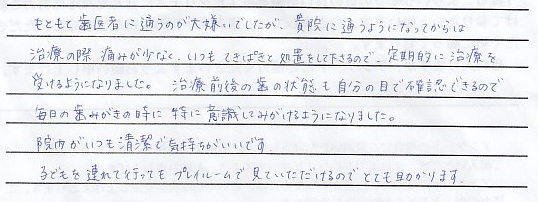 もともと歯医者に通うのが大嫌いでしたが、貴院に通うようになってからは
治療の際痛みが少なく、いつもてきぱきと処置をして下さるので、定期的に治療を
受けるようになりました。 治療前後の歯の状態も自分の目で確認できるので
毎日の歯みがきの時に特に意識してみがけるようになりました。
院内がいつも清潔で気持ちがいいです。
子どもを連れて行ってもプレイルームで見ていただけるのでとても助かります。